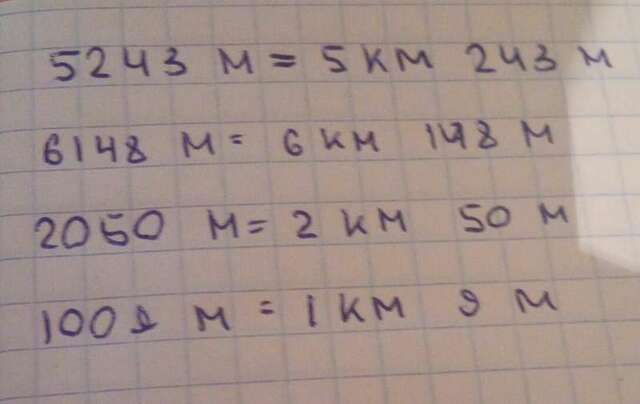 5243 м = 5 км 243 м
6148 м = 6 км 148 м
2050 м = 2 км 50 м
1009 м = 1 км 9 м